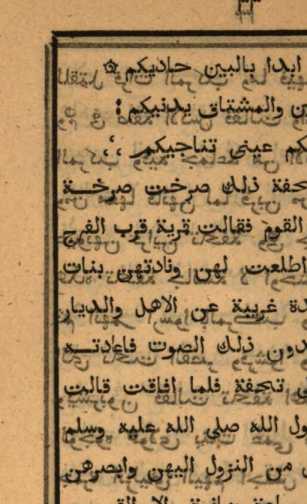 ابدا بالبين حاديكم ۞
ين والمشتاق يدنيكم :
كم عيني تناجيكم
تحفة ذلك صرخت صرخـــة
القوم فقالت قرية قرب الفرج
اطلعت لهن ونادتهن بنات
دة غريبة عن الاهل والديار
دون ذلك الصوت فاعادتــه
ى تحفة فلما افاقت قالت
ول الله صلى الله عليه وسلم
ى من النزول اليهن وابصرهن